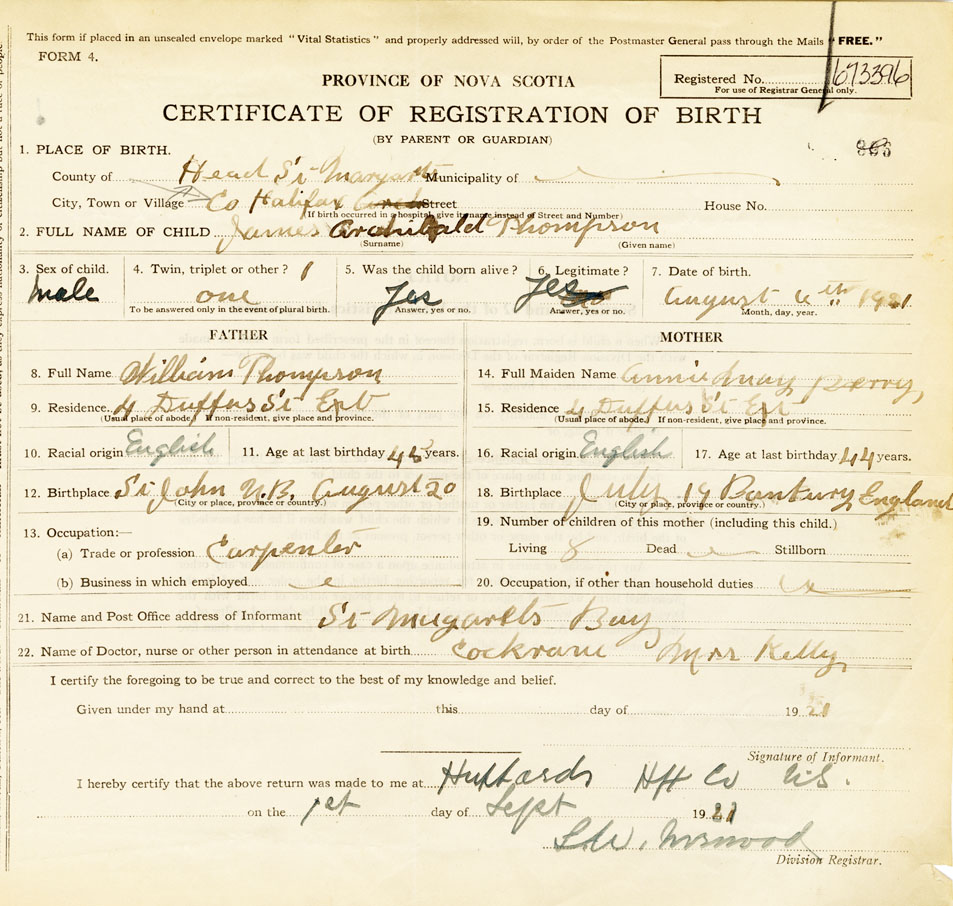 This form if placed in an unsealed envelope marked "Vital Statistics" and properly addressed will, by order of the Postmaster General pass through the Mails "FREE."
FORM 4.
PROVINCE OF NOVA SCOTIA
Registered No. 673396
For use of Registrar General only.
CERTIFICATE OF REGISTRATION OF BIRTH
(BY PARENT OR GUARDIAN)
1. PLACE OF BIRTH.
County of Head St Margarets Municipality of
City, Town or Village Co Halifax Street House No.
If birth occurred in a hospital, give its name instead of Street and Number)
2. FULL NAME OF CHILD James Archibald Thompson
(Surname) (Given name)
3. Sex of child. 4. Twin, triplet or other? 1 5. Was the child born alive? 6. Legitimate? 7. Date of birth.
Male one Yes Yes August 1921
To be answered only in the event of plural birth. Answer, yes or no. Answer, yes or no. Month, day, year.
FATHER MOTHER
8. Full Name William Thompson 14. Full Maiden Name Annie May Perry
9. Residence. 4 Duffus St 15. Residence 4 Duffus St
(Usual place of abode.) If non-resident, give place and province. (Usual place of abode.) If non-resident, give place and province.
10. Racial origin English 11. Age at last birthday years. 16. Racial origin English 17. Age at last birthday 44 years.
12. Birthplace St John N.B. August 20 18. Birthplace July 19 Banbury England
(City or place, province or country.) (City or place, province or country.)
13. Occupation:— 19. Number of children of this mother (including this child.)
(a) Trade or profession Carpenter Living 8 Dead Stillborn
(b) Business in which employed 20. Occupation, if other than household duties
21. Name and Post Office address of Informant St Mugarets Bay
22. Name of Doctor, nurse or other person in attendance at birth Cockrane Mrs Kelly
I certify the foregoing to be true and correct to the best of my knowledge and belief.
Given under my hand at this day of 1921
Signature of Informant.
I hereby certify that the above return was made to me at Hubbards Hfx Co N.S.
on the 1st day of Sept 1921
Division Registrar.